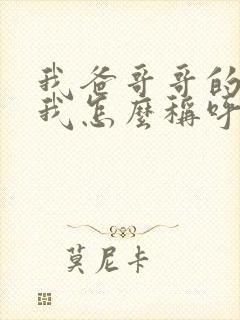 我爸哥哥的
我怎麼稱呼
莫尼卡